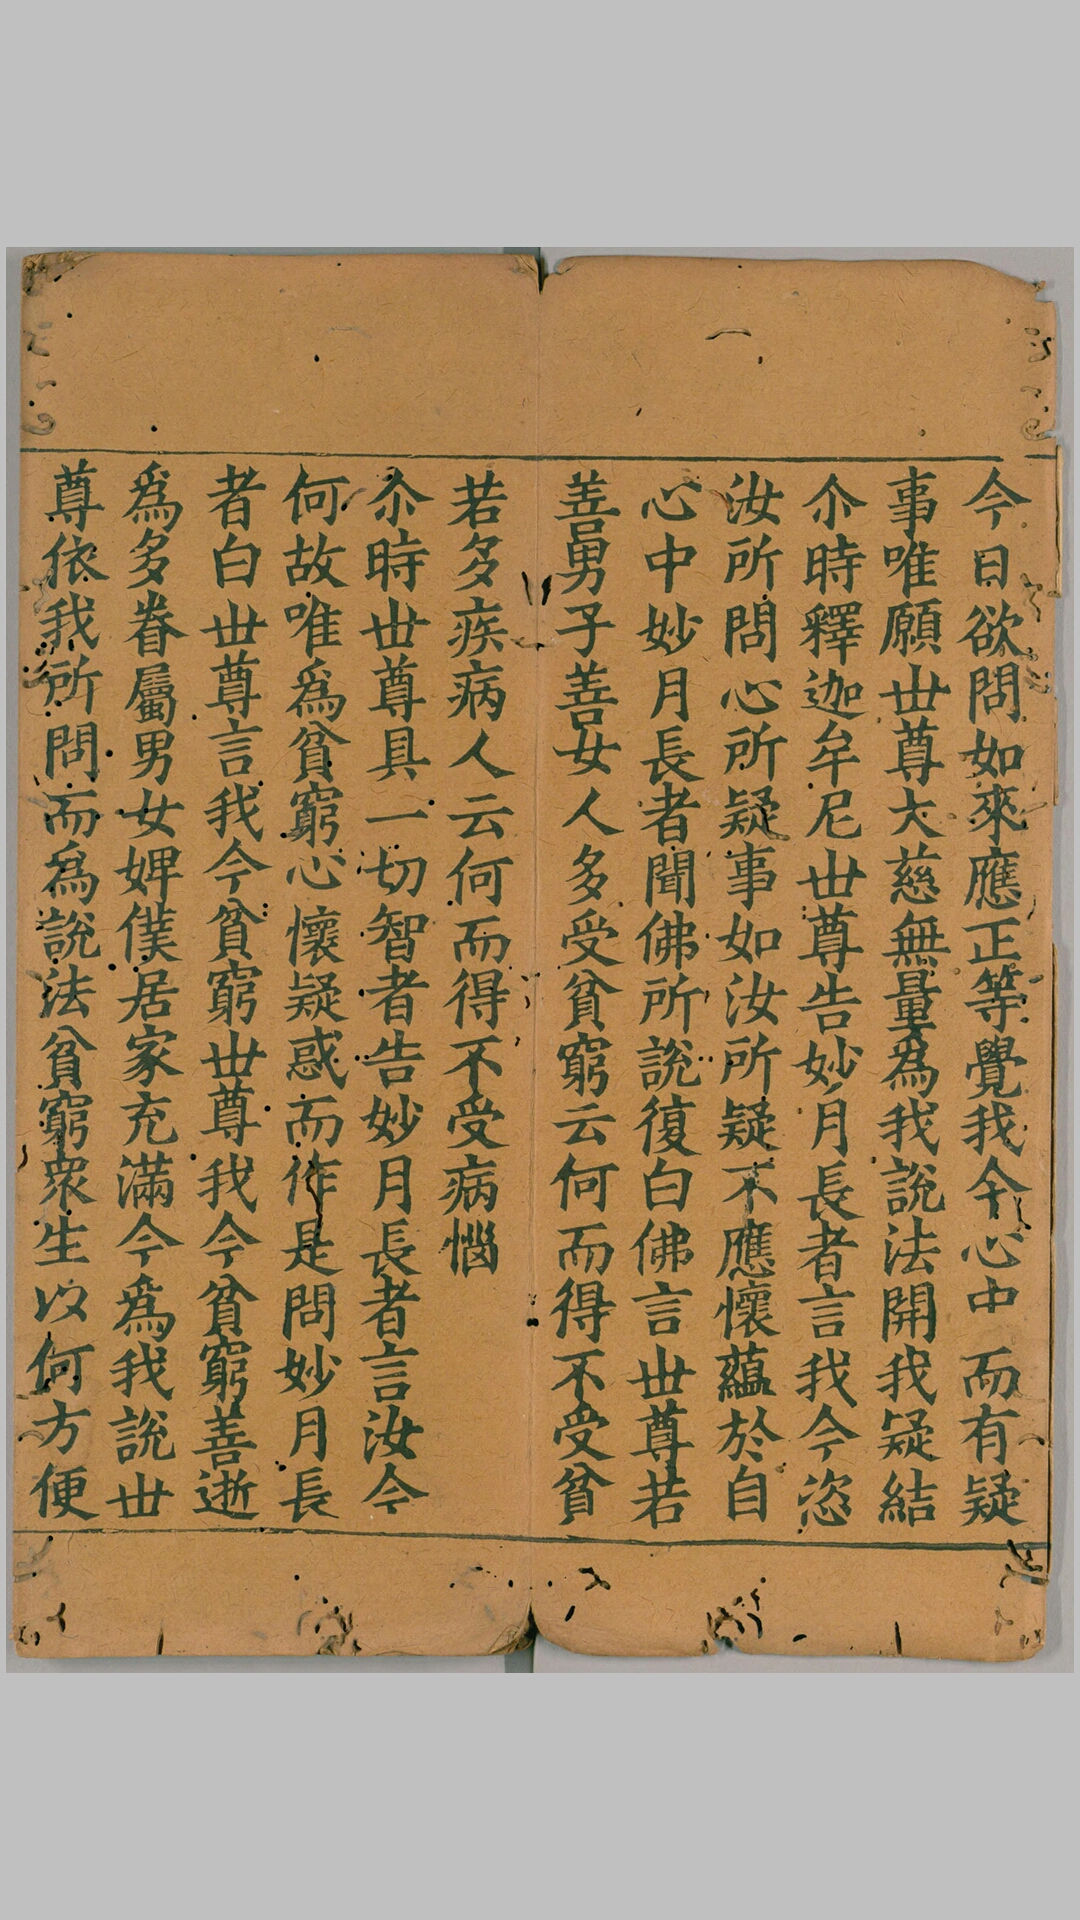 今日欲問如來應正等覺我今心中而有疑
事唯願世尊大慈無量為我說法開我疑結
尒時釋迦牟尼世尊告妙月長者言我今恣
汝所問心所疑事如汝所疑不應懷蘊於自
心中妙月長者聞佛所說復白佛言世尊若
善男子善女人多受貧窮云何而得不受貧
若多疾病人云何而得不受病惱
尒時世尊具一切智者告妙月長者言汝今
何故唯為貧窮心懷疑惑而作是問妙月長
者白世尊言我今貧窮世尊我今貧窮善逝
為多眷屬男女婢僕居家充滿今為我說世
尊依我所問而為說法貧窮衆生以何方便